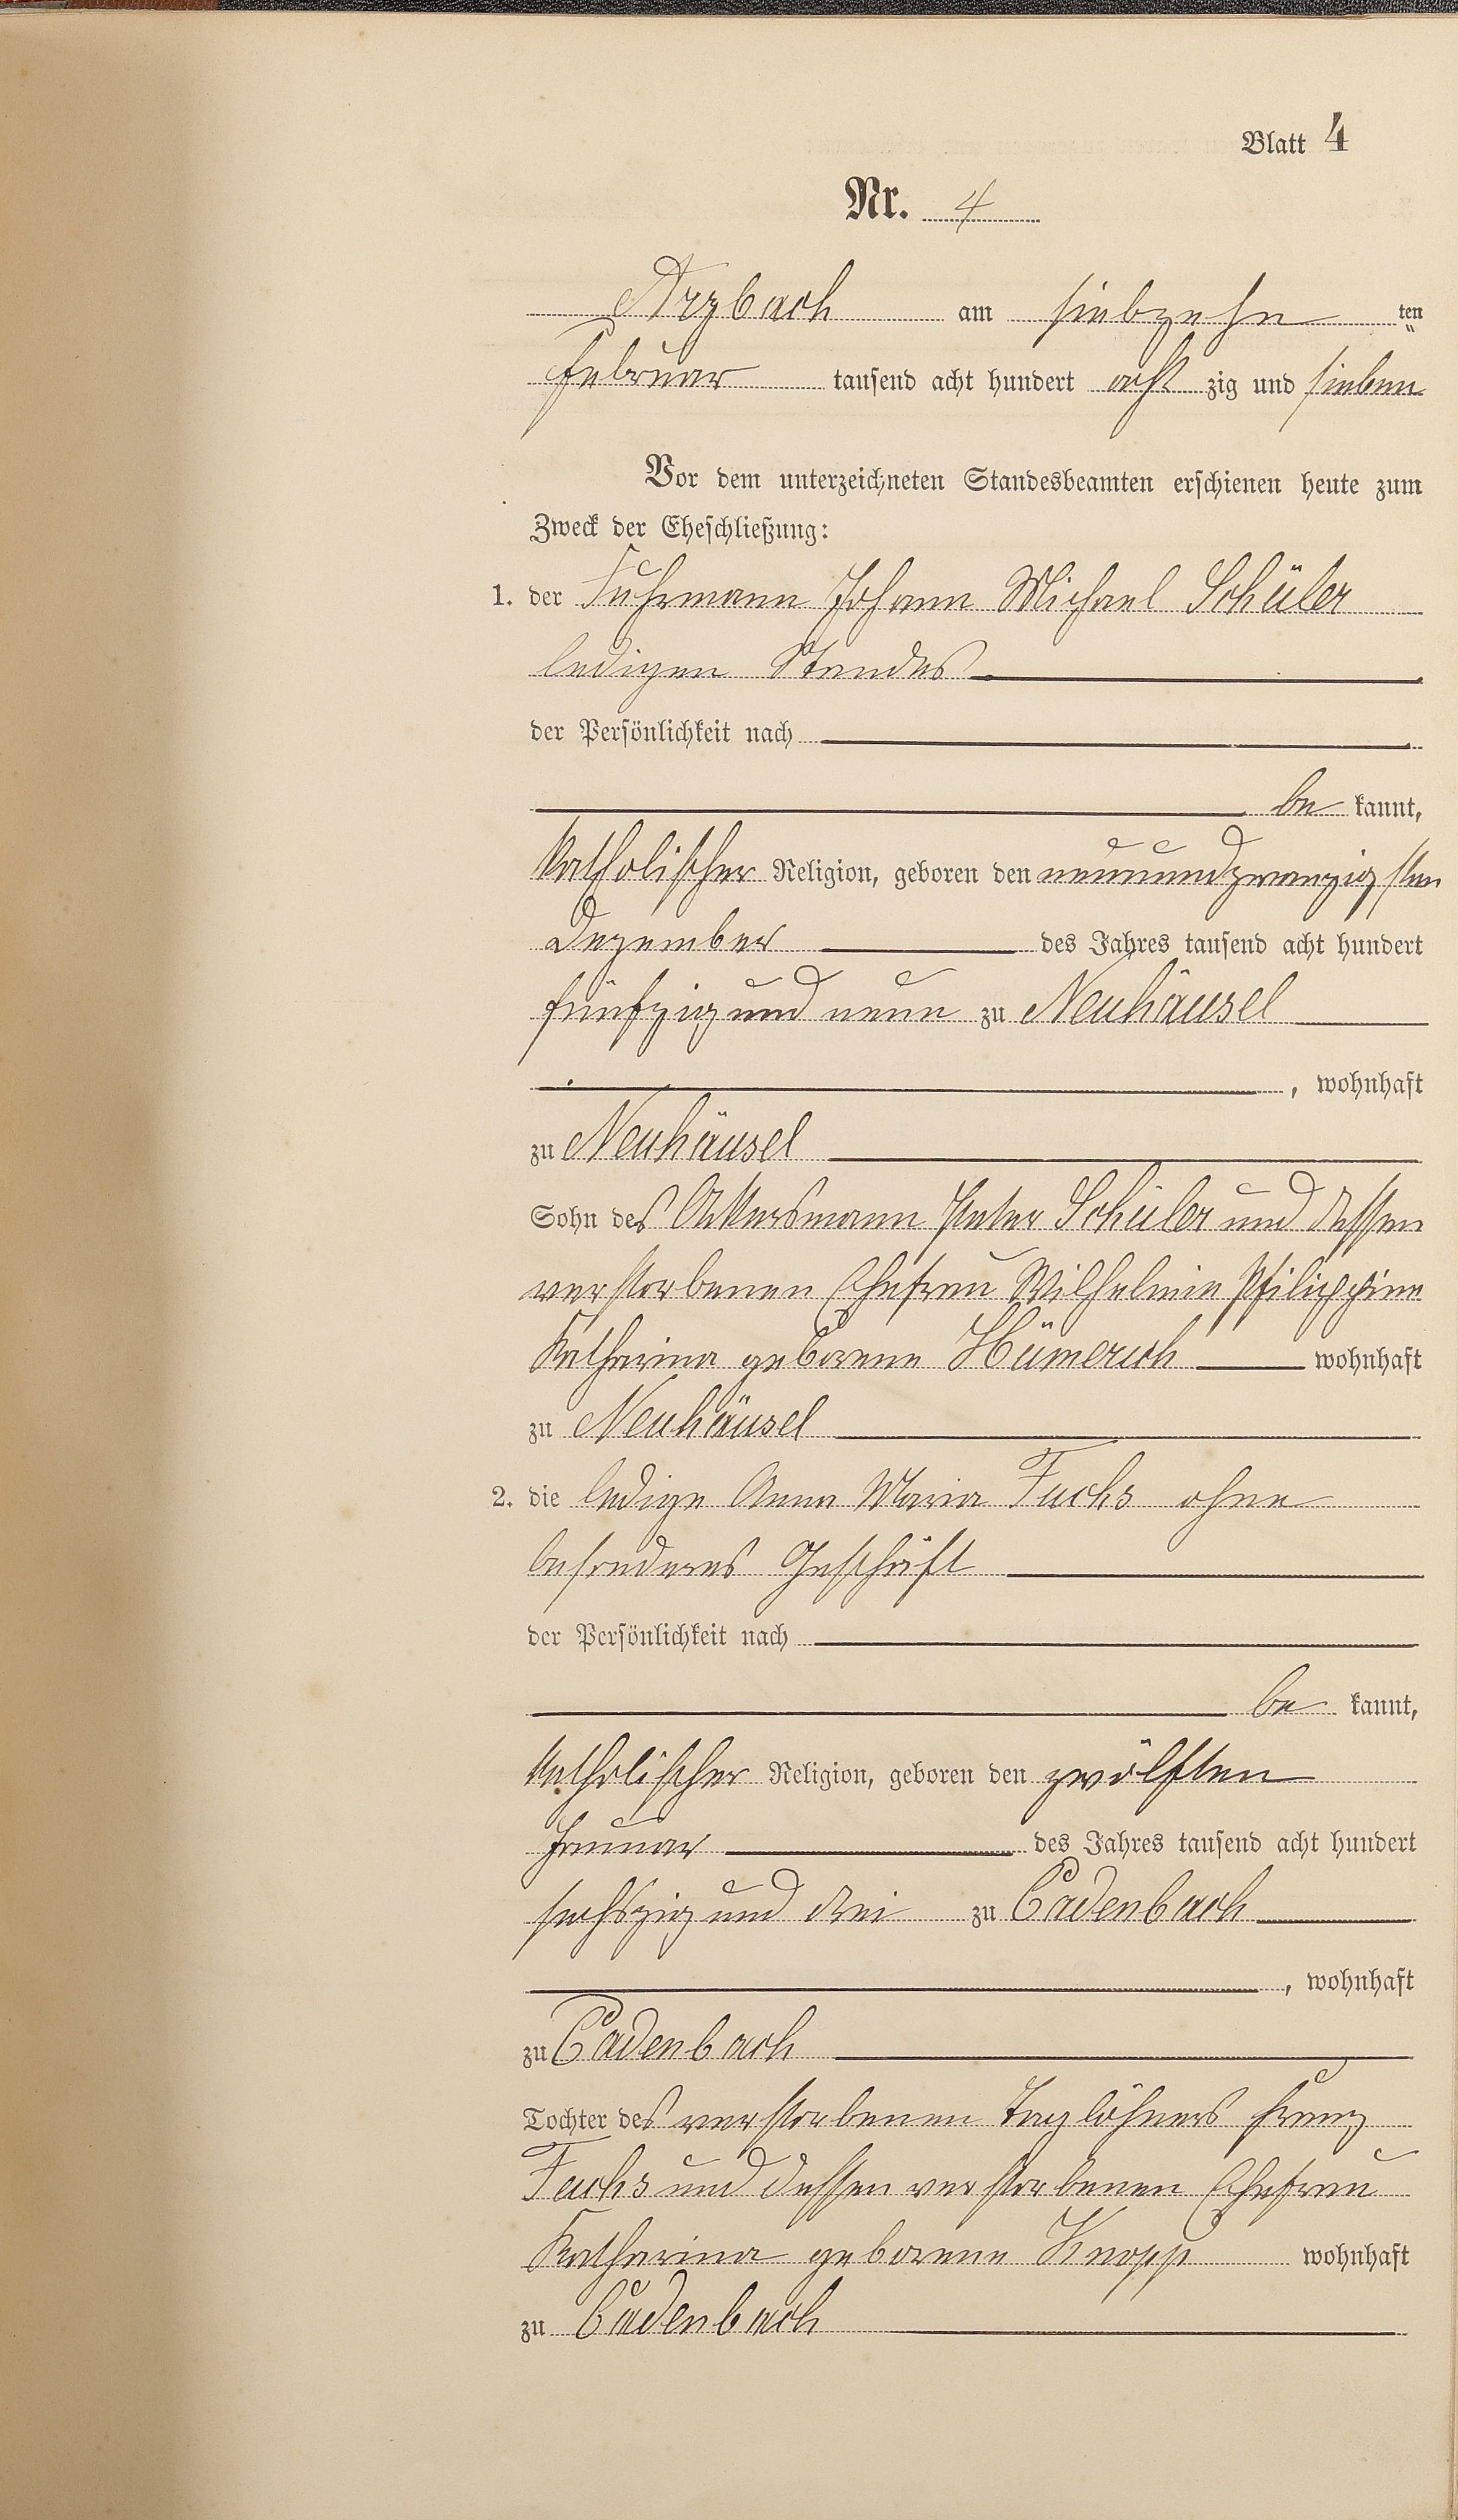 Blatt 4
Nr. 4
Arzbach am siebzehn ten
Februar tausend acht hundert acht zig und sieben
Vor dem unterzeichneten Standesbeamten erschienen heute zum
Zweck der Eheschließung:
1. der Fuhrmann Johann Michael Schüler
ledigen Standes
der Persönlichkeit nach
be kannt,
katholischer Religion, geboren den neunundzwanzigsten
Dezember des Jahres tausend acht hundert
fünfzig und neun zu Neuhäusel
, wohnhaft
zu Neuhäusel
Sohn des Ackersmann Peter Schüler und dessen
verstorbenen Ehefrau Wilhelmine Philippine
Katharina geborene Hümerich wohnhaft
zu Neuhäusel
2. die ledige Anna Maria Fuchs ohne
besonderes Geschäft
der Persönlichkeit nach
be kannt,
katholischer Religion, geboren den zwölften
Januar des Jahres tausend acht hundert
sechszig und drei zu Cadenbach
, wohnhaft
zu Cadenbach
Tochter des verstorbenen Taglöhners Franz
Fuchs und dessen verstorbenen Ehefrau
Katharina geborene Knopp wohnhaft
zu Cadenbach